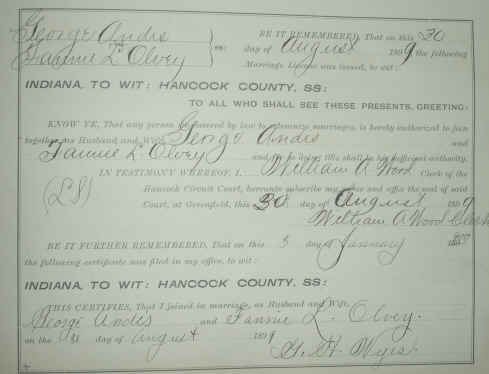 George Andis
To
Fannie L Olvey
ss:
BE IT REMEMBERED, That on this 30
day of August 1899 the following
Marriage License was issued, to wit:
INDIANA, TO WIT: HANCOCK COUNTY, SS:
TO ALL WHO SHALL SEE THESE PRESENTS, GREETING:
KNOW YE, That any person empowered by law to solemnize marriages, is hereby authorized to join
together as Husband and Wife George Andis and
Fannie L. Olvey and for so doing this shall be his sufficient authority.
IN TESTIMONY WHEREOF, I, William A Wood Clerk of the
Hancock Circuit Court, hereunto subscribe my name and affix the seal of said
(LS)
Court, at Greenfield, this 30 day of August 1899
William A Wood Clerk
BE IT FURTHER REMEMBERED, That on this 5 day of January
the following certificate was filed in my office, to wit:
INDIANA, TO WIT: HANCOCK COUNTY, SS:
THIS CERTIFIES, That I joined in marriage, as Husband and Wife,
George Andis and Fannie L. Olvey.
on the 31 day of August 1899